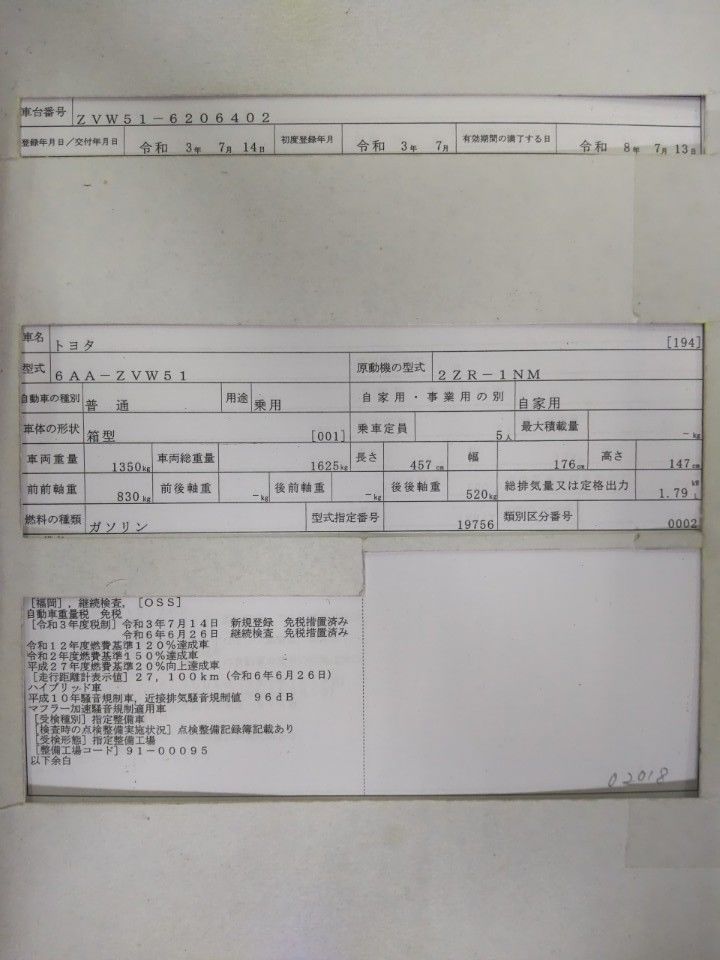 車台番号 ZVW51-6206402
登録年月日/交付年月日 令和 3年 7月 14日 初度登録年月 令和 3年 7月 有効期間の満了する日 令和 8年 7月 13日
車名 トヨタ [194]
型式 6AA-ZVW51 原動機の型式 2ZR-1NM
自動車の種別 普通 用途 乗用 自家用・事業用の別 自家用
車体の形状 箱型 [001] 乗車定員 5人 最大積載量 -kg
車両重量 1350kg 車両総重量 1625kg 長さ 457cm 幅 176cm 高さ 147cm
前前軸重 830kg 前後軸重 -kg 後前軸重 -kg 後後軸重 520kg 総排気量又は定格出力 1.79 kW L
燃料の種類 ガソリン 型式指定番号 19756 類別区分番号 0002
[福岡],継続検査,[OSS]
自動車重量税 免税
[令和3年度税制]令和3年7月14日 新規登録 免税措置済み
令和6年6月26日 継続検査 免税措置済み
令和12年度燃費基準120%達成車
令和2年度燃費基準150%達成車
平成27年度燃費基準20%向上達成車
[走行距離計表示値]27,100km(令和6年6月26日)
ハイブリッド車
平成10年騒音規制車,近接排気騒音規制値 96dB
マフラー加速騒音規制適用車
[受検種別]指定整備車
[検査時の点検整備実施状況]点検整備記録簿記載あり
[受検形態]指定整備工場
[整備工場コード]91-00095
以下余白
02018